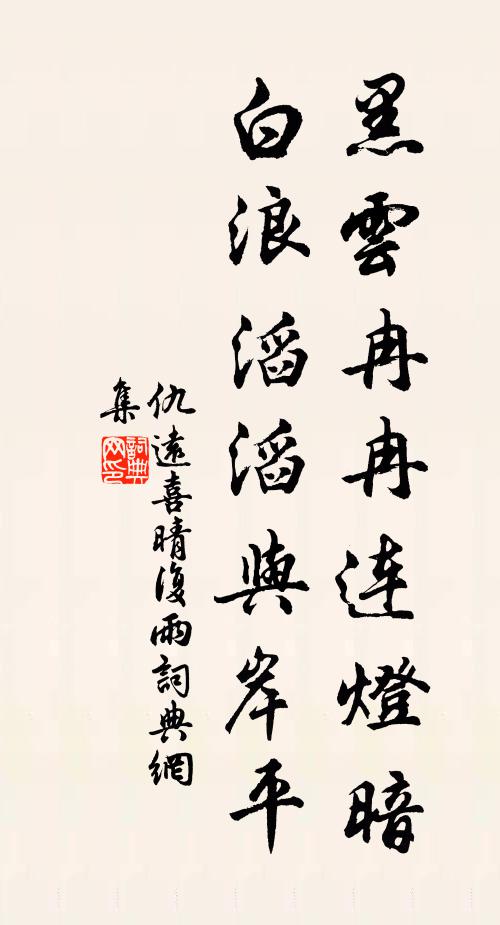 黑雲冉冉連燈暗
白浪滔滔與岸平
仇遠喜晴復雨詞典網
集
詞典網印